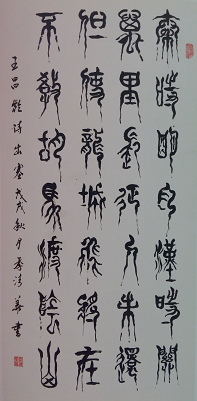 秦時明月漢時關
萬里長征人未還
但使龍城飛將在
不敎胡馬渡陰山
王昌龄诗出塞戊戌秋月清华书